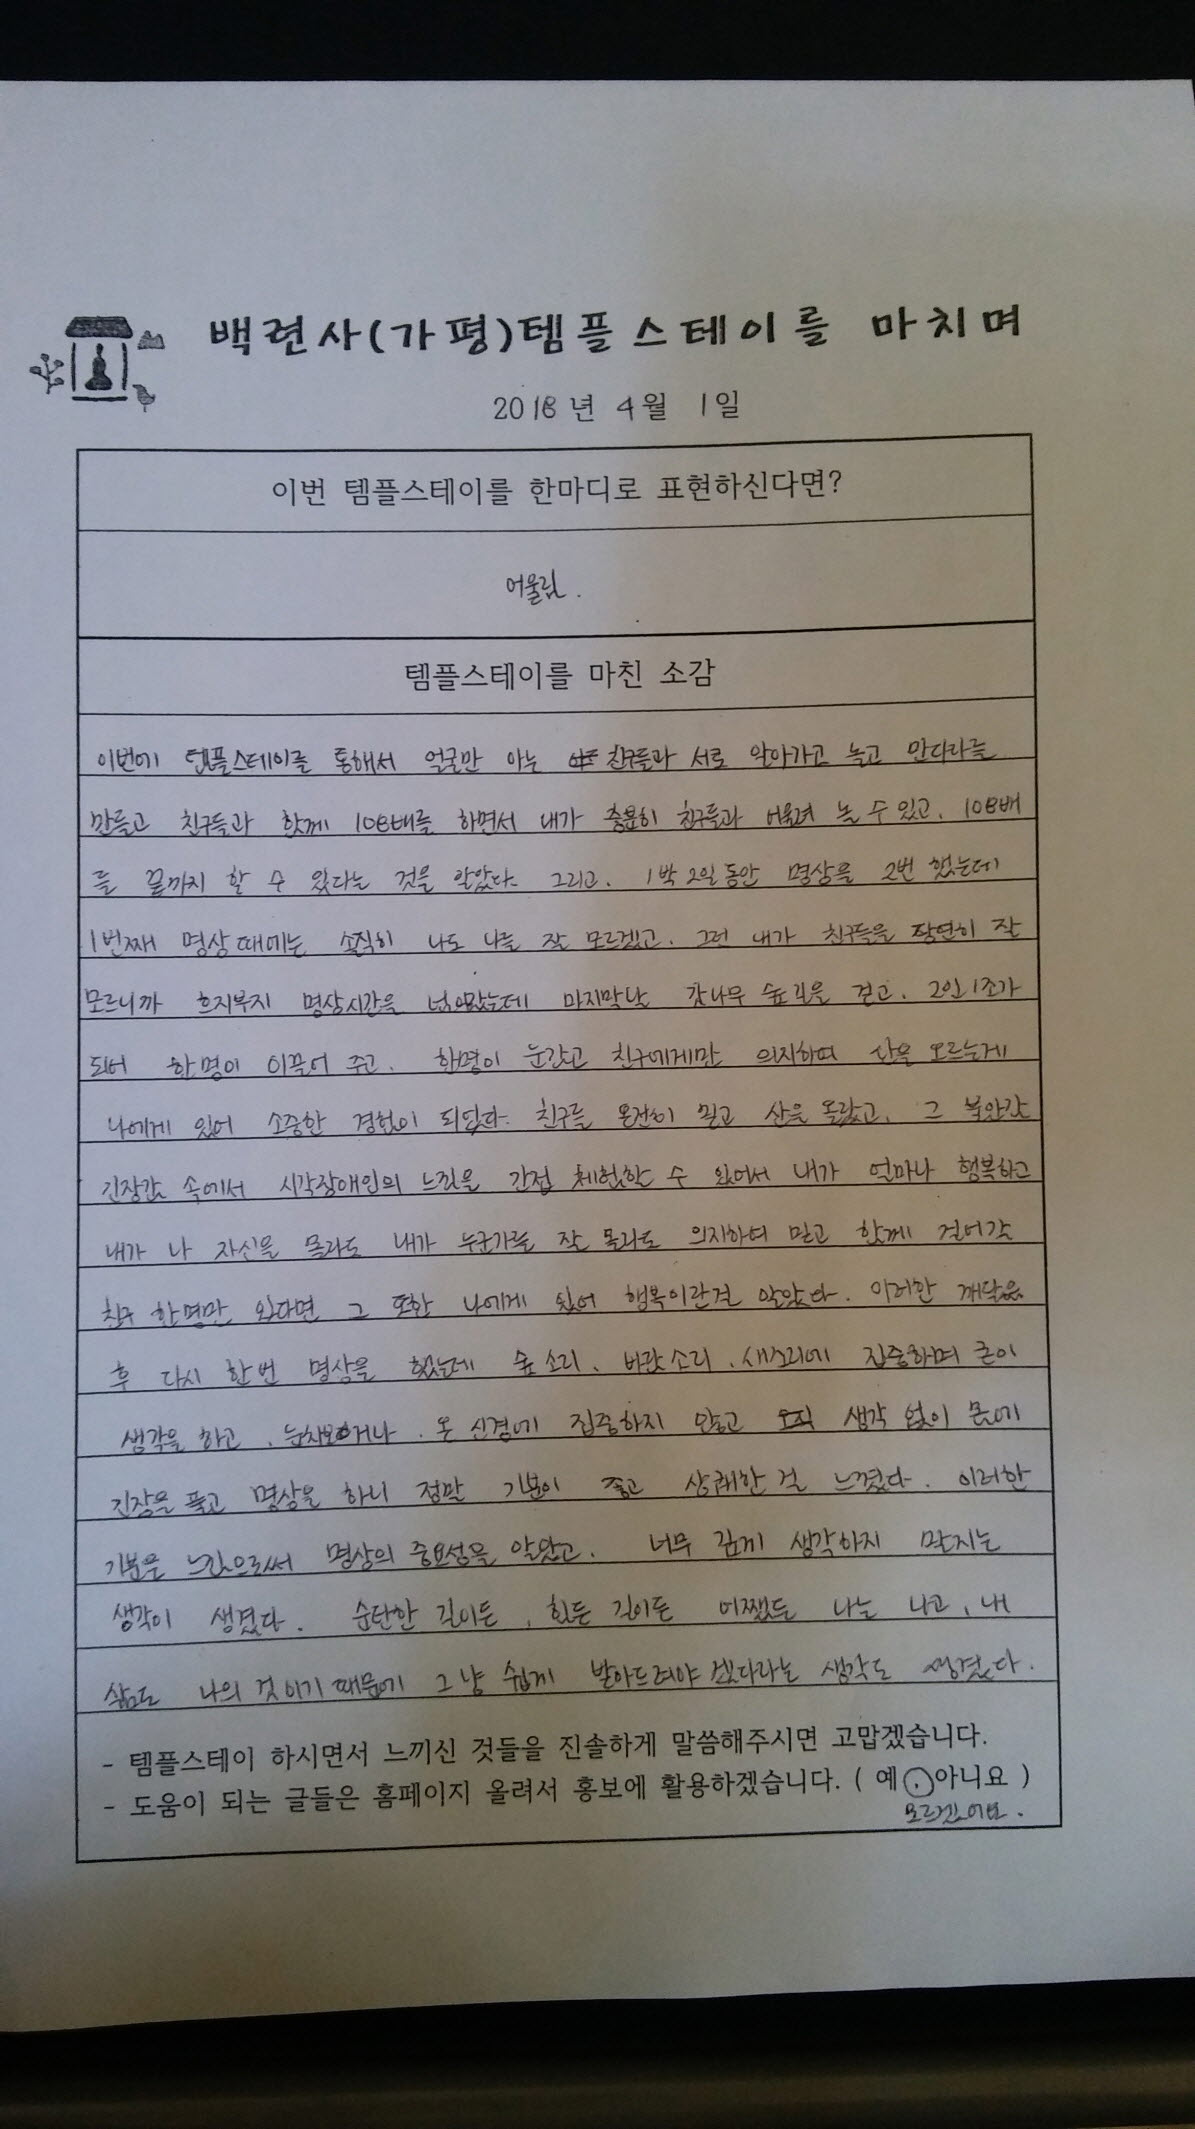 백련사(가평)템플스테이를 마치며
2018년 4월 1일
이번 템플스테이를 한마디로 표현하신다면?
어울림.
템플스테이를 마친 소감
이번에 템플스테이를 통해서 얼굴만 아는 친구들과 서로 알아가고 놀고 만다라를
만들고 친구들과 함께 108배를 하면서 내가 충분히 친구들과 어울려 놀 수 있고, 108배
를 끝까지 할 수 있다는 것을 알았다. 그리고, 1박 2일동안 명상을 2번 했는데
1번째 명상때에는 솔직히 나도 나를 잘 모르겠고, 그런 내가 친구들을 당연히 잘
모르니까 흐지부지 명상시간을 마지막날 잣나무 숲길을 걷고, 2인1조가
되어 한명이 이끌어 주고, 한명이 눈감고 친구에게만 의지하며 산을 오르는게
나에게 있어 소중한 경험이 되었다. 친구를 온전히 믿고 산을 올랐고, 그 불안감
긴장감 속에서 시각장애인의 느낌을 간접 체험할 수 있어서 내가 얼마나 행복하고
내가 나 자신을 몰라도 내가 누군가를 잘 몰라도 의지하며 믿고 함께 걸어갈
친구 한명만 있다면 그 또한 나에게 있어 행복이란걸 알았다. 이러한 깨달음
후 다시 한번 명상을 했는데 숲소리, 바람소리, 새소리에 집중하며
생각을 하고, 온 신경에 집중하지 않고 오직 생각 없이 몸에
긴장을 풀고 명상을 하니 정말 기분이 좋고 상쾌한 걸 느꼈다. 이러한
기분을 느낌으로써 명상의 중요성을 알았고, 너무 깊게 생각하지 말자는
생각이 생겼다. 순탄한 길이든, 힘든 길이든 어쨌든 나는 나고, 내
삶도 나의 것이기 때문에 그냥 쉽게 받아드려야 겠다라는 생각도 생겼다.
- 템플스테이 하시면서 느끼신 것들을 진솔하게 말씀해주시면 고맙겠습니다.
- 도움이 되는 글들은 홈페이지 올려서 홍보에 활용하겠습니다. ( 예 . 아니요 )
모르겠어요.